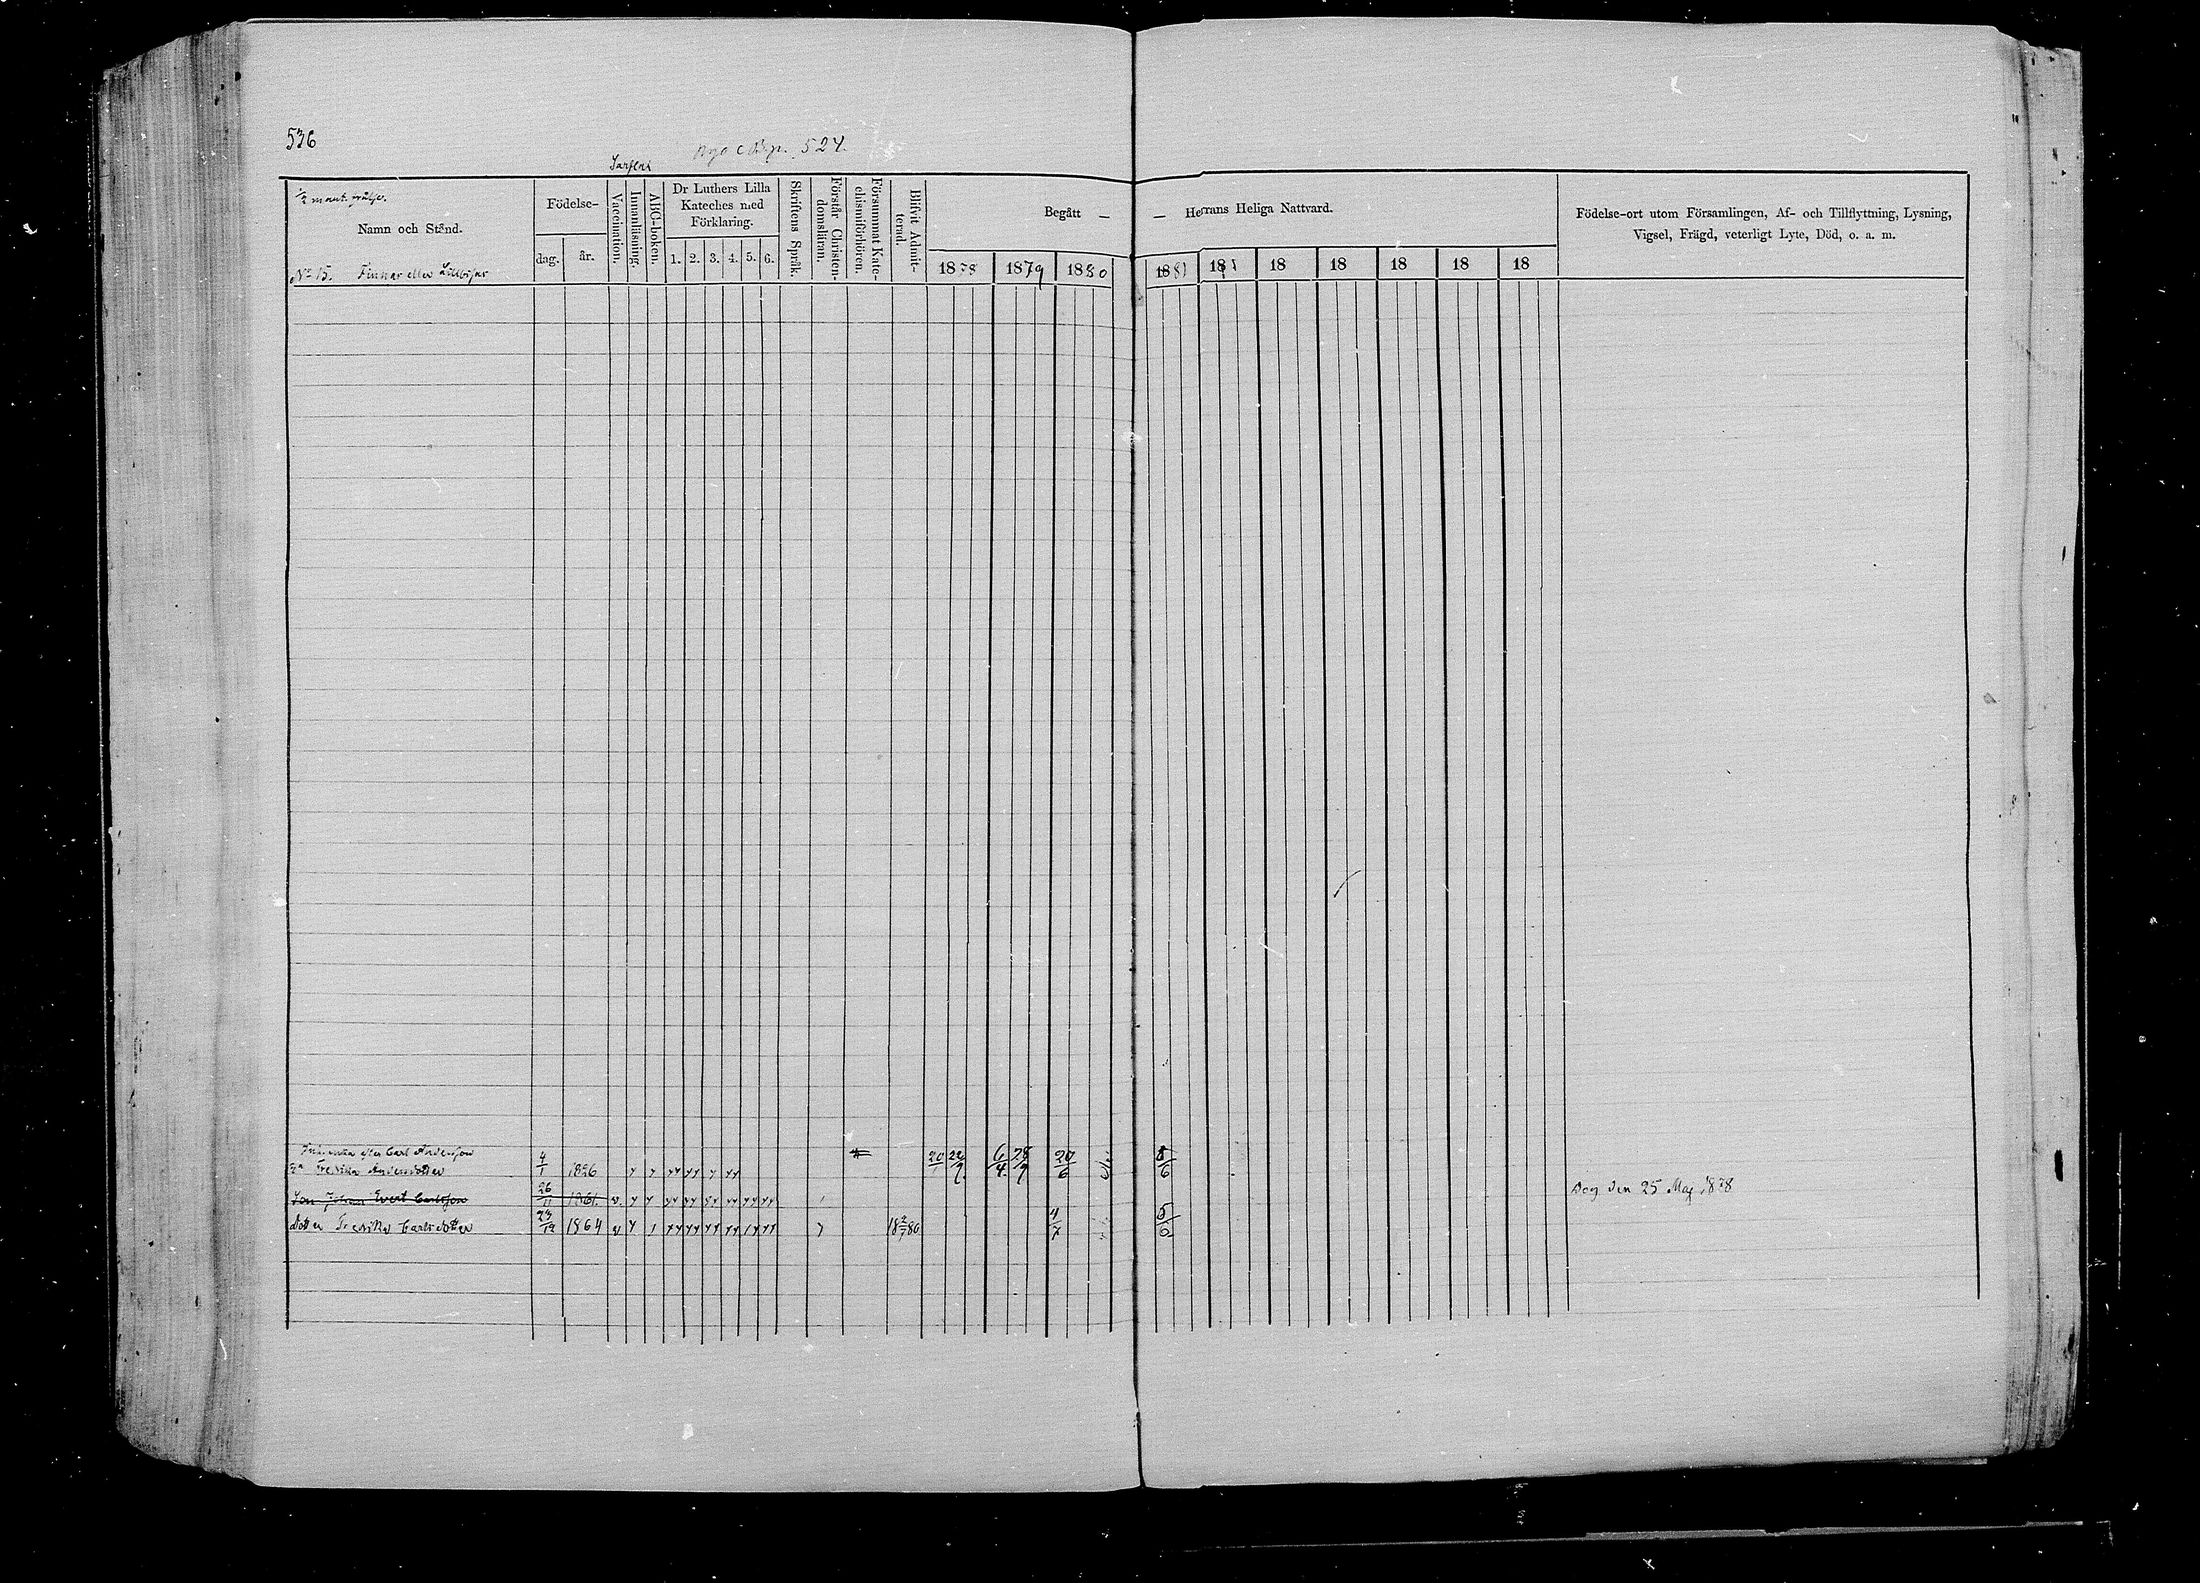 536
524.
Namn och Stånd.
Födelse-
dag.
år.
Vaccination.
Innanläsning.
ABC-boken.
Dr Luthers Lilla
Kateches med
Förklaring.
1. 2. 3. 4. 5. 6.
Skriftens Språk.
Förstår Christen-
domsläran.
Försummat Kate-
chismiförhören.
Blifvit Admit-
terad.
Begått — — Herrans Heliga Nattvard.
1878 1879 1880 1881 18 18 18 18 18 18
Födelse-ort utom Församlingen, Af- och Tillflyttning, Lysning,
Vigsel, Frägd, veterligt Lyte, Död, o. a. m.
No 15. Finnar eller
efter Carl Andersson
Fredrika Andersdotter 4/1 1826 20 22/9 6/4 28/9 20/6 8/6
Son Johan Evert Carlsson 26/11 1861 v. Dog den 25 Maj 1878
dotter Fredrika Carlsdotter 23/12 1864 v 4/7 5/6